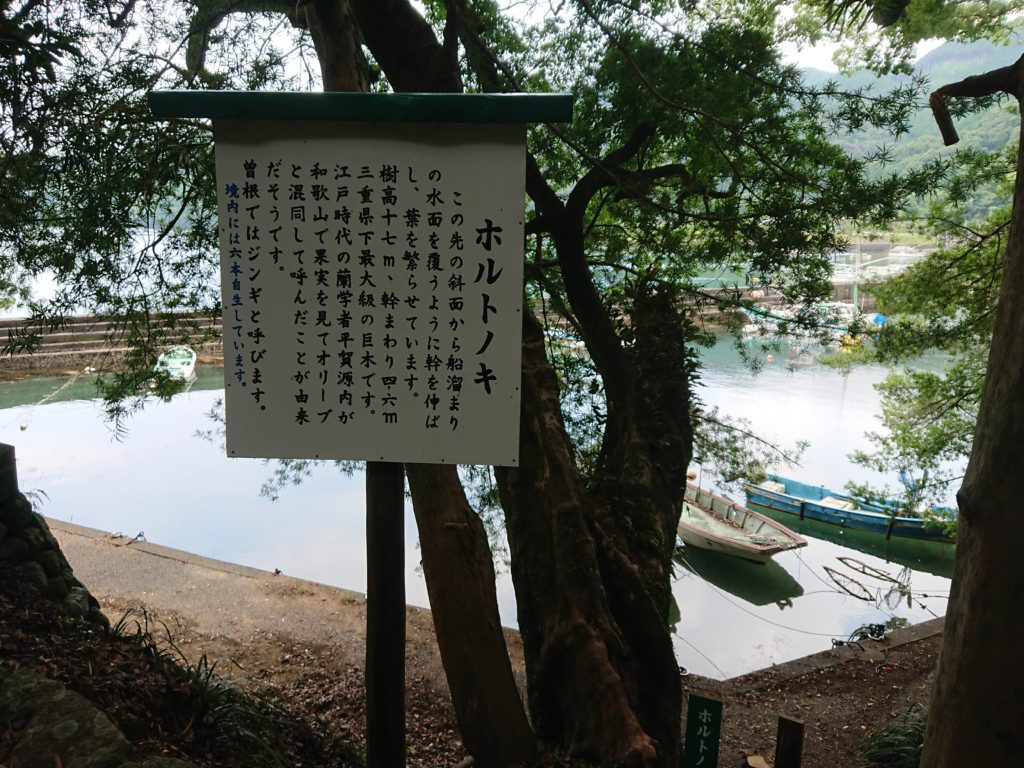 ホルトノキ
この先の斜面から船溜まり
の水面を覆うように幹を伸ば
し、葉を繁らせています。
樹高十七m、幹まわり四・六m
三重県下最大級の巨木です。
江戸時代の蘭学者平賀源内が
和歌山で果実を見てオリーブ
と混同して呼んだことが由来
だそうです。
曽根ではジンギと呼びます。
境内には六本自生しています。
ホルトノ